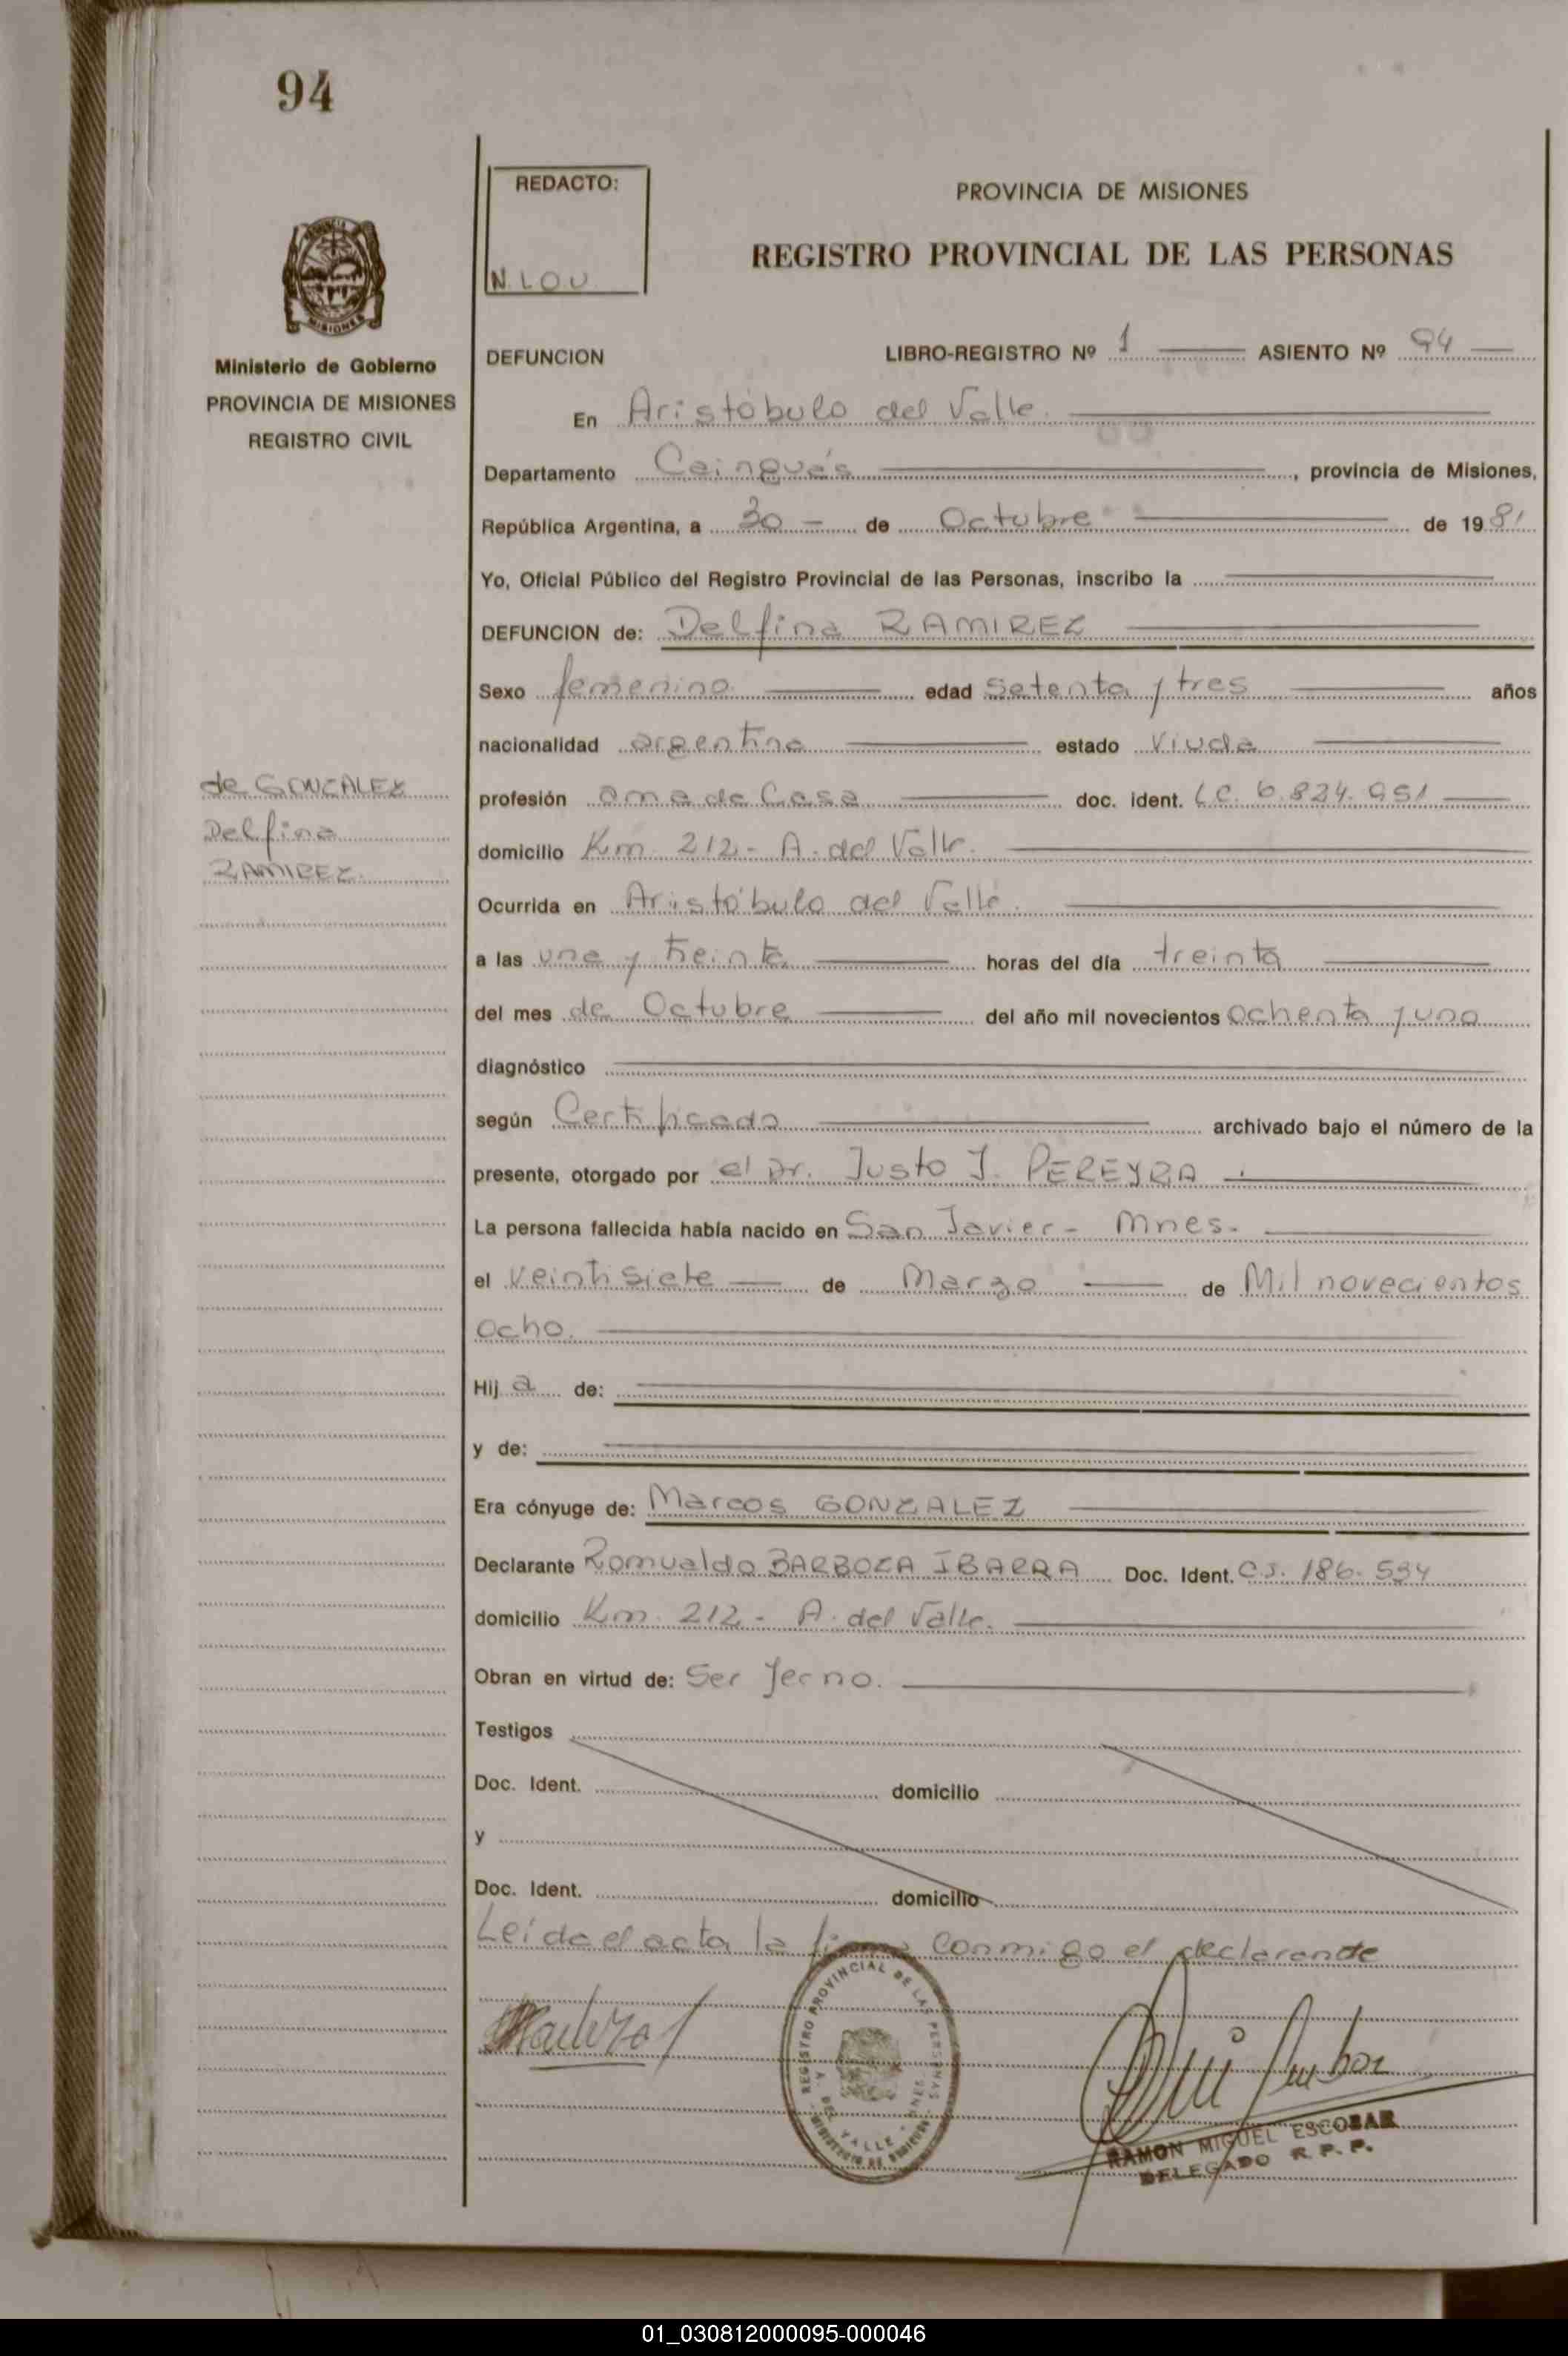 94
REDACTO:
N. LOU
PROVINCIA DE MISIONES
REGISTRO PROVINCIAL DE LAS PERSONAS
Ministerio de Gobierno
PROVINCIA DE MISIONES
REGISTRO CIVIL
DEFUNCION LIBRO-REGISTRO Nº 1 ASIENTO Nº 94
En Aristóbulo del Valle.
Departamento Cainguás, provincia de Misiones,
República Argentina, a 30 - de Octubre de 1981
Yo, Oficial Público del Registro Provincial de las Personas, inscribo la
DEFUNCION de: Delfina RAMIREZ
Sexo femenino edad setenta y tres años
nacionalidad argentina estado Viuda
de GONZALEZ
Delfina
RAMIREZ.
profesión ama de Casa doc. ident. LC. 6.824.951
domicilio Km. 212 - A. del Valle.
Ocurrida en Aristóbulo del Valle.
a las una y treinta horas del día treinta
del mes de Octubre del año mil novecientos ochenta y uno
diagnóstico
según Certificado archivado bajo el número de la
presente, otorgado por el Dr. Justo J. PEREYRA.
La persona fallecida había nacido en San Javier - Mnes.
el Veintisiete de Marzo de Mil novecientos
ocho.
Hija de:
y de:
Era cónyuge de: Marcos GONZALEZ
Declarante Romualdo BARBOZA IBARRA Doc. Ident. C.I. 186.534
domicilio Km. 212 - A. del Valle.
Obran en virtud de: Ser Yerno.
Testigos
Doc. Ident. domicilio
y
Doc. Ident. domicilio
Leída el acta la firma conmigo el declarante
REGISTRO PROVINCIAL DE LAS PERSONAS
DEL VALLE - MNES.
RAMON MIGUEL ESCOBAR
DELEGADO R. P. P.
01_030812000095-000046